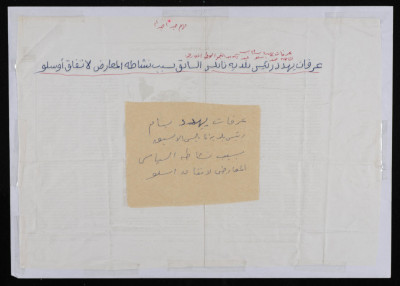 عرفات يهدد رئيس بلدية نابلس السابق بسبب نشاطه المعارض لاتفاق أوسلو
عرفات يهدد بسام
رئيس بلدية نابلس الاسبق
بسبب نشاطه السياسي
المعارض لاتفاق اوسلو